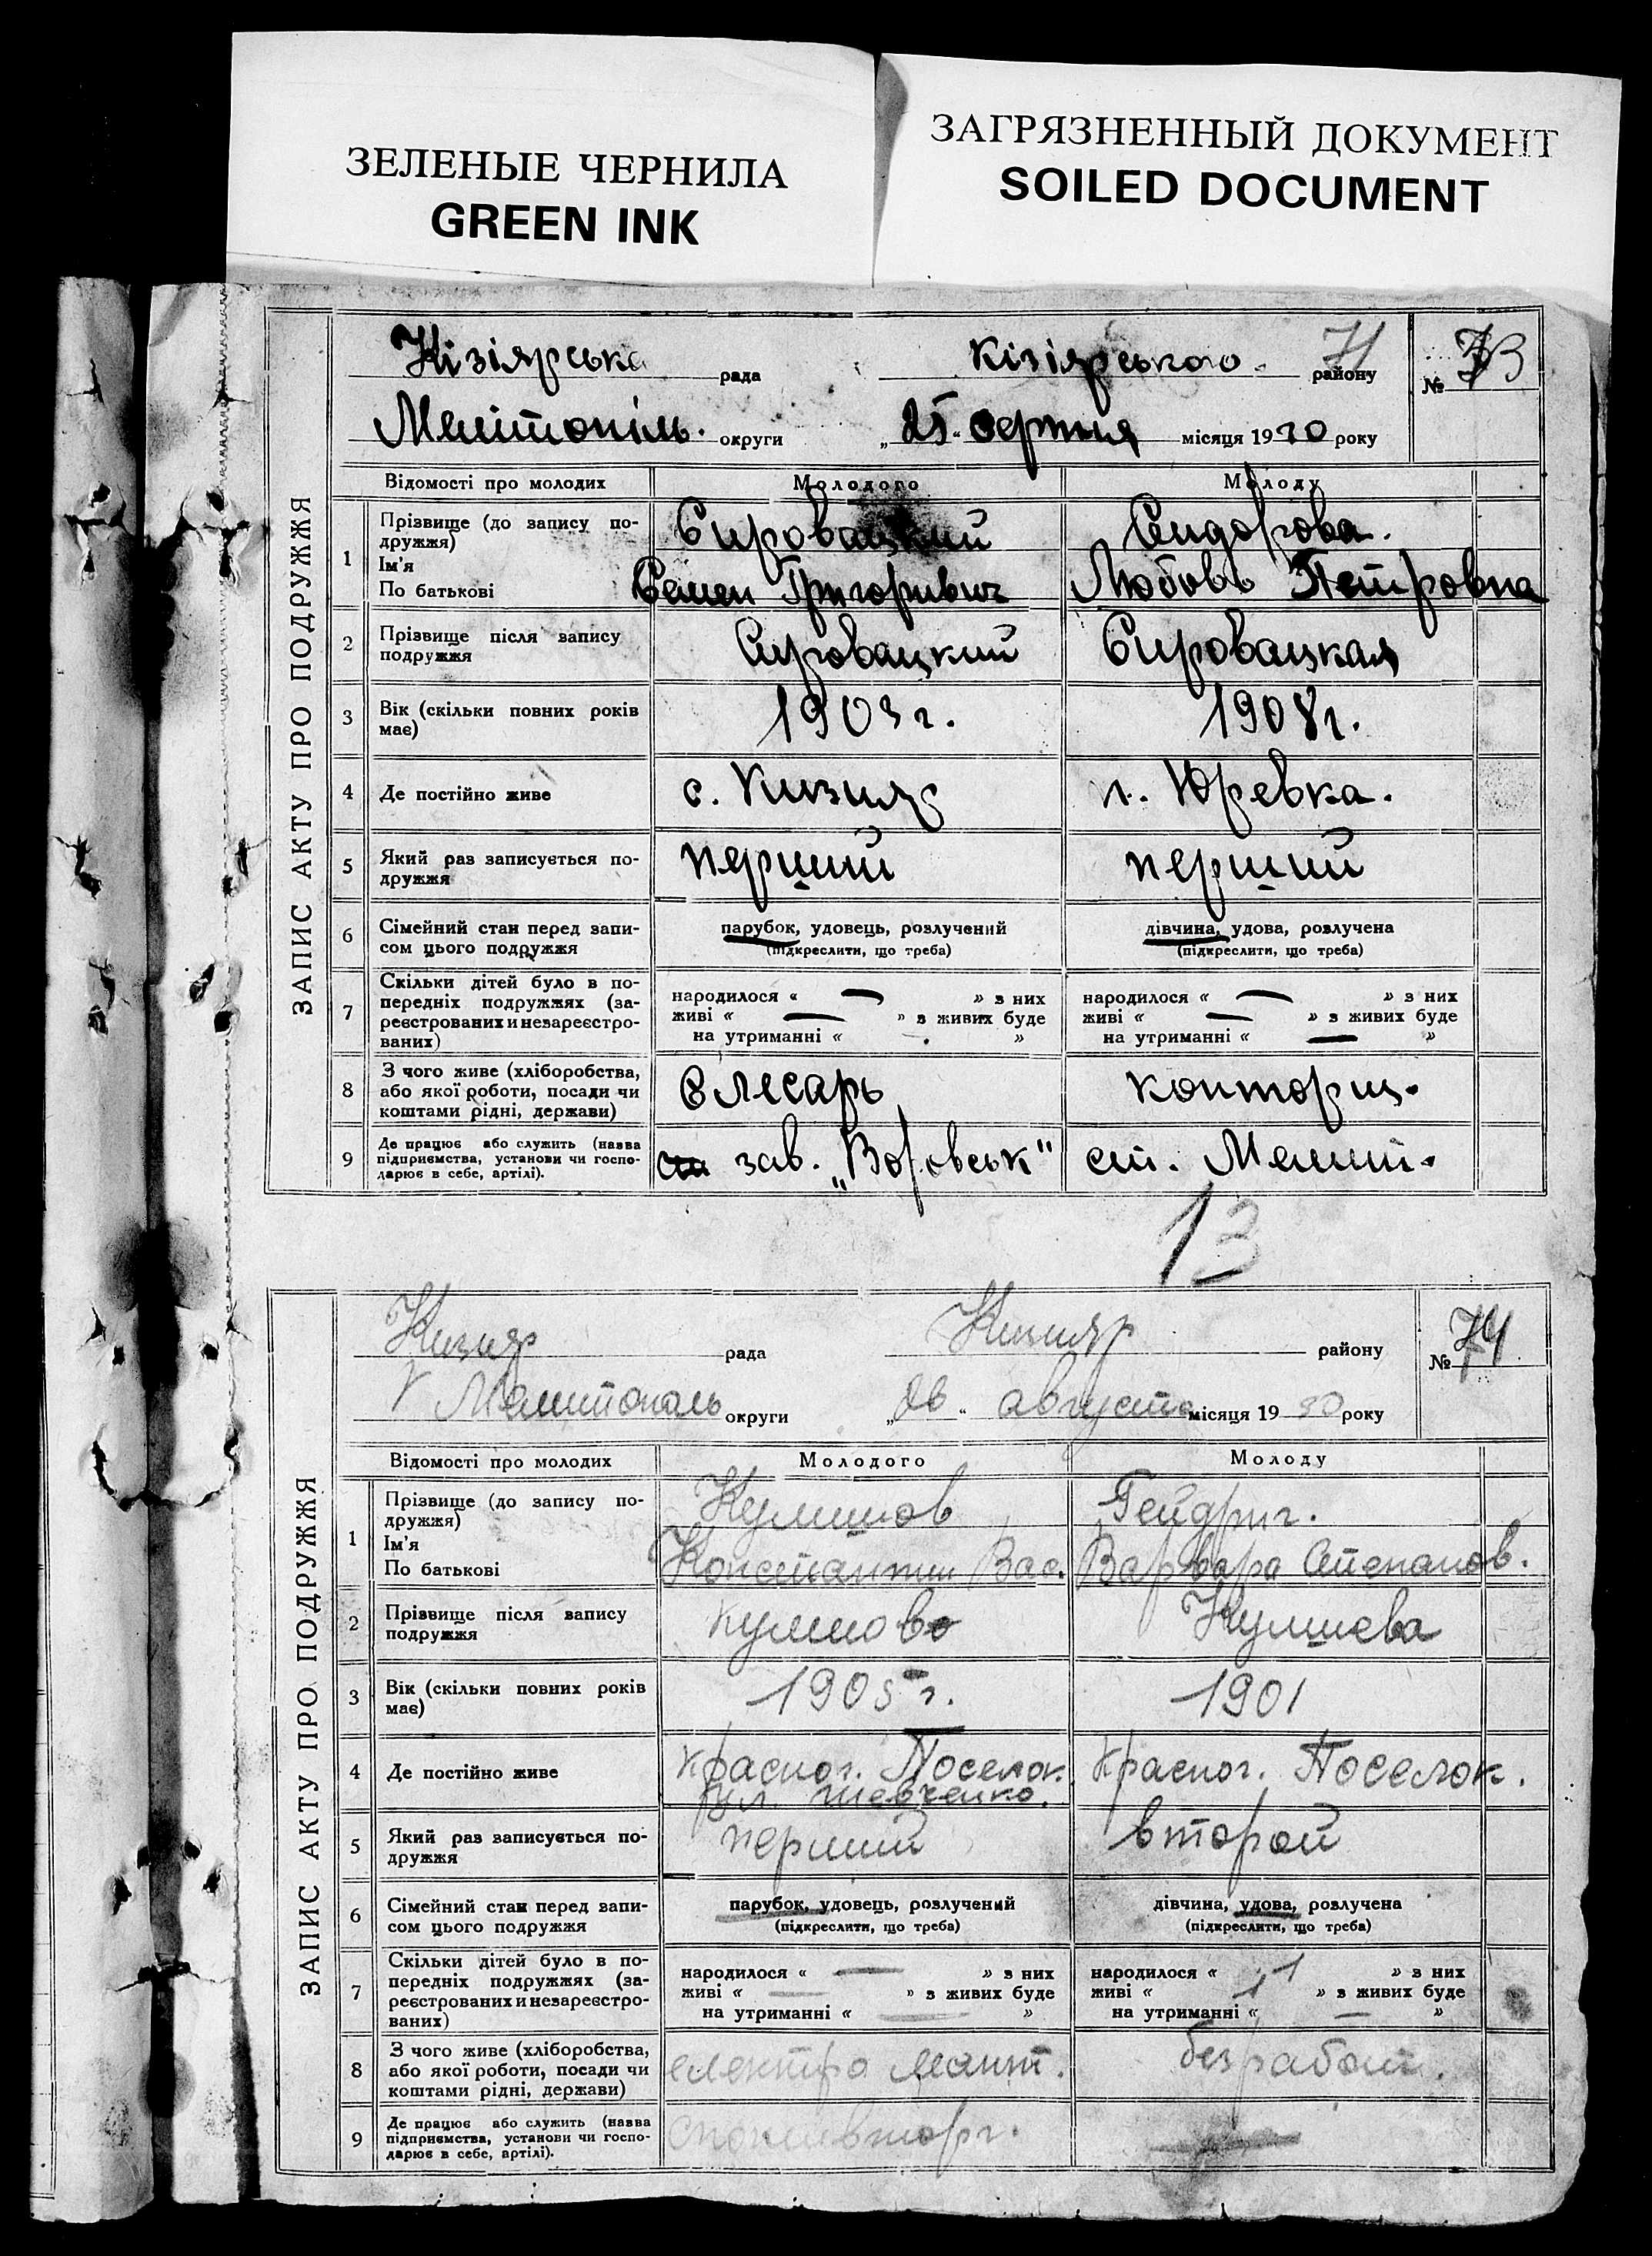 ЗЕЛЕНЫЕ ЧЕРНИЛА
GREEN INK
ЗАГРЯЗНЕННЫЙ ДОКУМЕНТ
SOILED DOCUMENT
ЗАПИС АКТУ ПРО ПОДРУЖЖЯ
Кізіярська рада Кізіярського району 71 № 73
Мелітопіль. округи „25“ серпня місяця 1930 року
Відомості про молодих Молодого Молоду
1 Прізвище (до запису по-
дружжя) Сировацкий Сидорова.
Ім'я
По батькові Семен Григоривич Любовь Петровна
2 Прізвище після запису
подружжя Сировацкий Сировацкая
3 Вік (скільки повних років
має) 1903 г. 1908 г.
4 Де постійно живе с. Кизияр п. Юревка.
5 Який раз записується по-
дружжя перший перший
6 Сімейний стан перед запи-
сом цього подружжя парубок, удовець, розлучений дівчина, удова, розлучена
(підкреслити, що треба) (підкреслити, що треба)
7 Скільки дітей було в по-
передніх подружжях (за-
реєстрованих и незареєстро-
ваних)
народилося « — » з них народилося « — » з них
живі « — » з живих буде живі « — » з живих буде
на утриманні « » на утриманні « — »
8 З чого живе (хліборобства,
або якої роботи, посади чи
коштами рідні, держави) Слесарь конторщ.
9 Де працює або служить (назва
підприємства, установи чи госпо-
дарює в себе, артілі). зав. „Воровськ" ст. Мелит.
13
ЗАПИС АКТУ ПРО ПОДРУЖЖЯ
Кизияр рада Кизияр району № 74
Мелитополь округи „26“ августа місяця 1930 року
Відомості про молодих Молодого Молоду
1 Прізвище (до запису по-
дружжя) Кулишов Гейдриг.
Ім'я
По батькові Константин Вас. Варвара Степанов.
2 Прізвище після запису
подружжя Кулишов Кулишева
3 Вік (скільки повних років
має) 1905 г. 1901
4 Де постійно живе Красног. Поселок. Красног. Поселок.
ул. Шевченко.
5 Який раз записується по-
дружжя перший второй
6 Сімейний стан перед запи-
сом цього подружжя парубок, удовець, розлучений дівчина, удова, розлучена
(підкреслити, що треба) (підкреслити, що треба)
7 Скільки дітей було в по-
передніх подружжях (за-
реєстрованих и незареєстро-
ваних)
народилося « — » з них народилося « 1 » з них
живі « — » з живих буде живі « 1 » з живих буде
на утриманні « — » на утриманні « — »
8 З чого живе (хліборобства,
або якої роботи, посади чи
коштами рідні, держави) електро монт. безработ.
9 Де працює або служить (назва
підприємства, установи чи госпо-
дарює в себе, артілі).